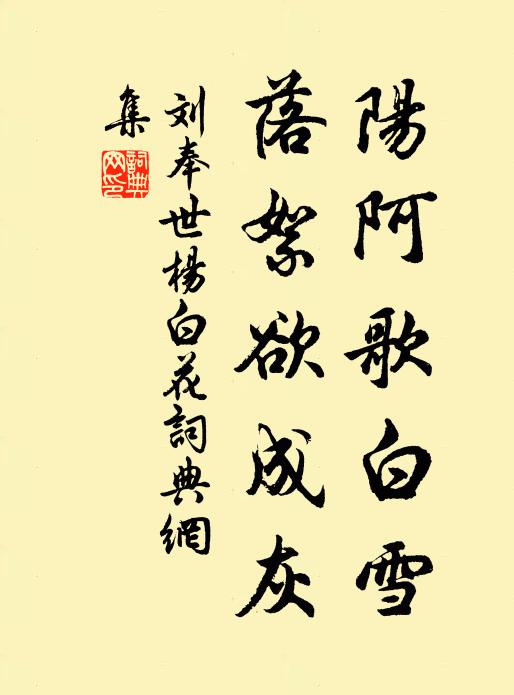 陽阿歌白雪
落絮欲成灰
刘奉世楊白花詞典網
集
詞典
网印